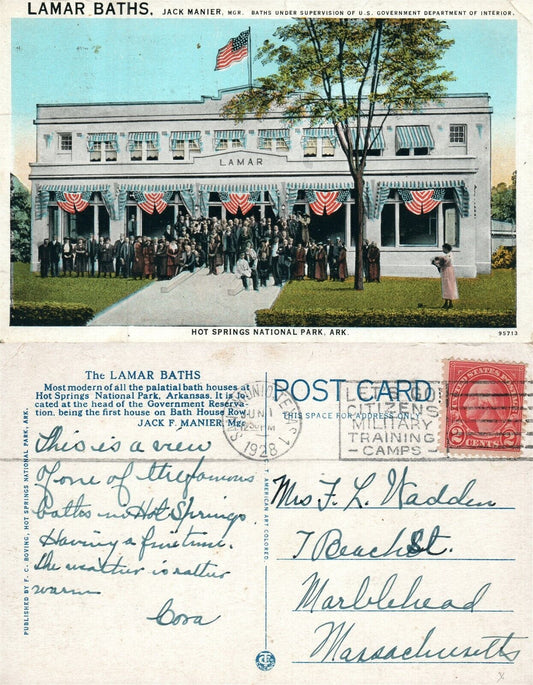 LAMAR BATHS, JACK MANIER, MGR. BATHS UNDER SUPERVISION OF U.S. GOVERNMENT DEPARTMENT OF INTERIOR.
LAMAR
HOT SPRINGS NATIONAL PARK, ARK.
95713
The LAMAR BATHS
Most modern of all the palatial bath houses at
Hot Springs National Park, Arkansas. It is lo-
cated at the head of the Government Reserva-
tion, being the first house on Bath House Row.
JACK F. MANIER, Mgr.
POST CARD
THIS SPACE FOR ADDRESS ONLY
JUN 1
12:30 PM
1928
LET'S GO
CITIZENS
MILITARY
TRAINING
CAMPS
UNITED STATES POSTAGE
2 CENTS 2
This is a view
of one of the famous
baths in Hot Springs.
Having a fine time.
The weather is rather
warm
Cora
Mrs F. L. Wadden
7 Beach St.
Marblehead
Massachusetts
PUBLISHED BY F. C. BOVING, HOT SPRINGS NATIONAL PARK, ARK.
C. T. AMERICAN ART COLORED
CT
x